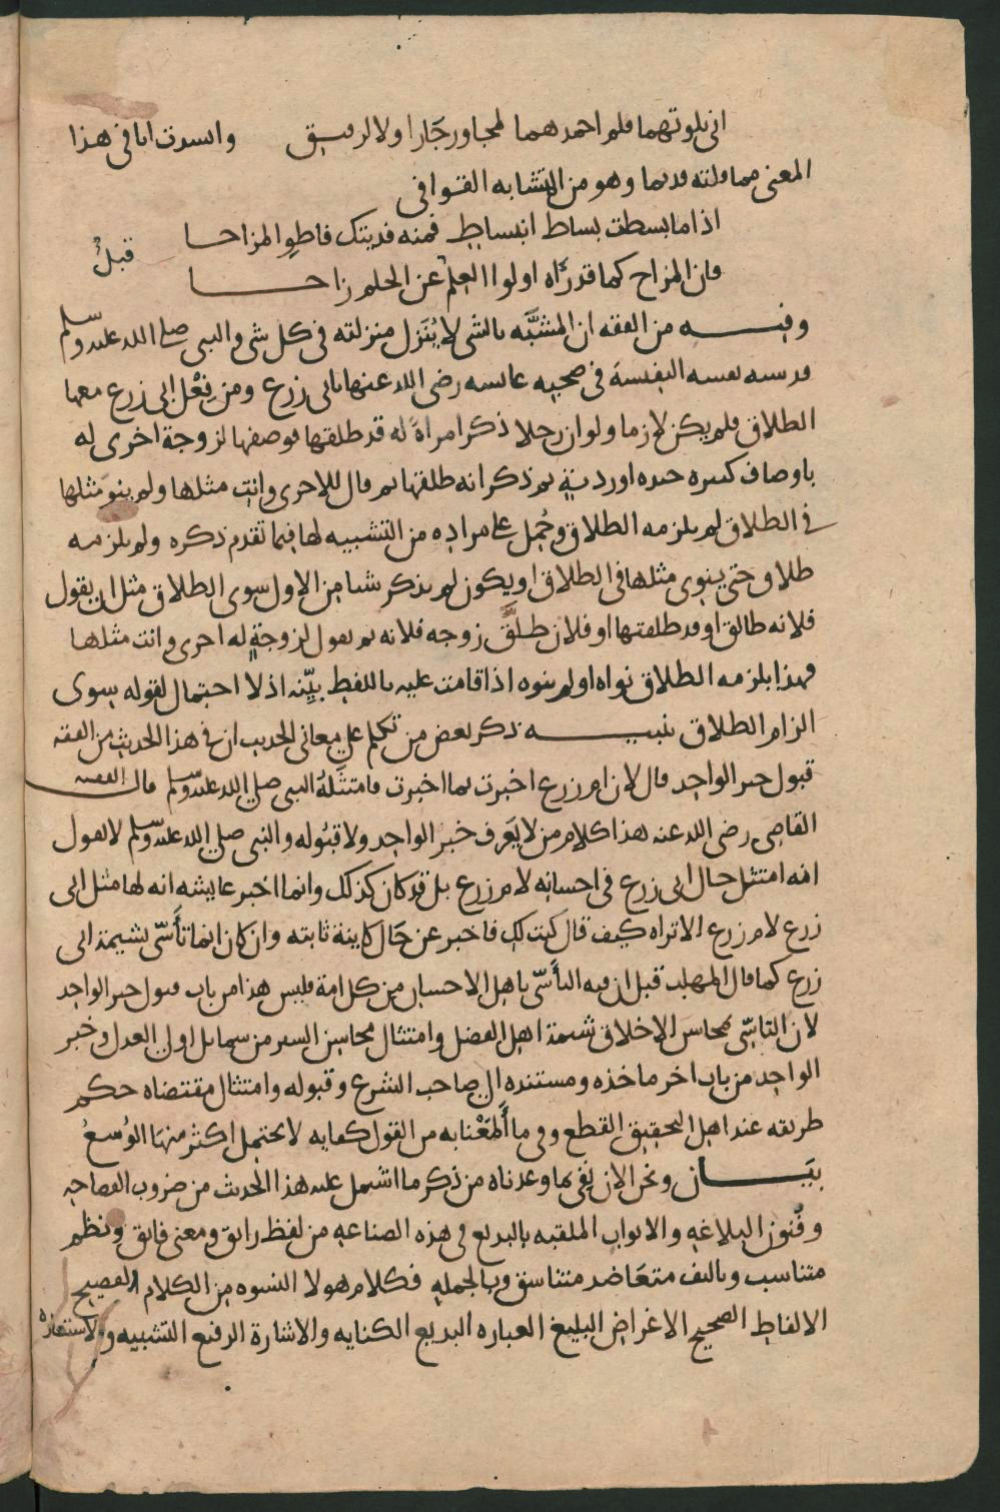 اني بلوتهما فلم احمدهما لمجاور جَارا ولا لرفيق وانشدت انا في هذا
المعنى مما قلته قديما وهو من المتشابه القوافي
اذا ما بسطت بساط انبساط فمنه فديتك فاطوِ المزاحا
فان المزاح كما قد رآه اولوا العلم عن الحلم زاحا
قبلُ
وفيه من الفقه ان المشبَّه بالشي لا يُنَزل منزلته في كل شي والنبي صلى الله عليه وسلم
قد شبه نفسه النفيسة في صحبه عائشه رضي الله عنها بابي زرع ومن فِعْل ابي زرع معها
الطلاق فلم يكن لازما ولو ان رجلا ذكر امراةً له قد طلقها فوصفها لزوجة اخرى له
باوصاف كثيره حسنه او رديئة ثم ذكر انه طلقها ثم قال للاخرى وانتِ مثلها ولم ينوِ مثلها
في الطلاق لم يلزمه الطلاق وحُمل على مراده من التشبيه لها فيما تقدم ذكره ولم يلزمه
طلاق حتى ينوى مثلها في الطلاق او يكون لم يذكر شيا من الاول سوى الطلاق مثل ان يقول
فلانه طالق او قد طلقتها او فلان طلَّق زوجه فلانه ثم يقول لزوجةٍ له اخرى وانت مثلها
فهذا يلزمه الطلاق نواه او لم ينوه اذا قامت عليه باللفظ بيّنه اذ لا احتمال لقوله سوى
الزام الطلاق تنبيه ذكر بعض من تكلم على معاني الحديث ان في هذا الحديث من الفقه
قبول خبر الواحد قال لان ام زرع اخبرت بما اخبرت فامتثلهُ النبي صلى الله عليه وسلم قال الفقيه
القاضي رضي الله عنه هذا كلام من لا يَعرف خبر الواحد ولا قبُوله والنبي صلى الله عليه وسلم لا نقول
انه امتثل حال ابي زرع في احسانه لام زرع بل قد كان كذلك وانما اخبر عايشه انه لها مثل ابي
زرع لام زرع الا تراه كيف قال كنت لكِ فاخبر عن حَال كاينة ثابته وان كان انما تأسّى بشيمة ابي
زرع كما قال المهلب قبل ان فيه التأسّي باهل الاحسان من كل امة فليس هذا من باب قبول خبر الواحد
لان التاسّي بمحاسن الاخلاق شيمة اهل الفضل وامتثال محاسن السير من شمايل اولى العدل وخبر
الواحد من باب اخر ماخذه ومستنده الى صاحب الشرع وقبوله وامتثال مقتضاه حكم
طريقه عند اهل التحقيق القطع وفي ما أَلمَعْنا به من القول كفايه لا يحتمل اكثر منهَا الوُسعُ
بيَان ونحن الان نفي بما وعدناه من ذكر ما اشتمل عليه هذا الحديث من ضروب الفصاحه
وفُنون البلاغه والابواب الملقبه بالبديع في هذه الصناعه من لفظ رائق ومعنى فائق ونظم
متناسب وتاليف متعَاضد متناسق وبالجمله فكلام هولا النسوه من الكلام الفصيح
الالفاظ الصحيح الاغراض البليغ العباره البديع الكنايه والاشارة الرفيع التشبيه والاستعاره